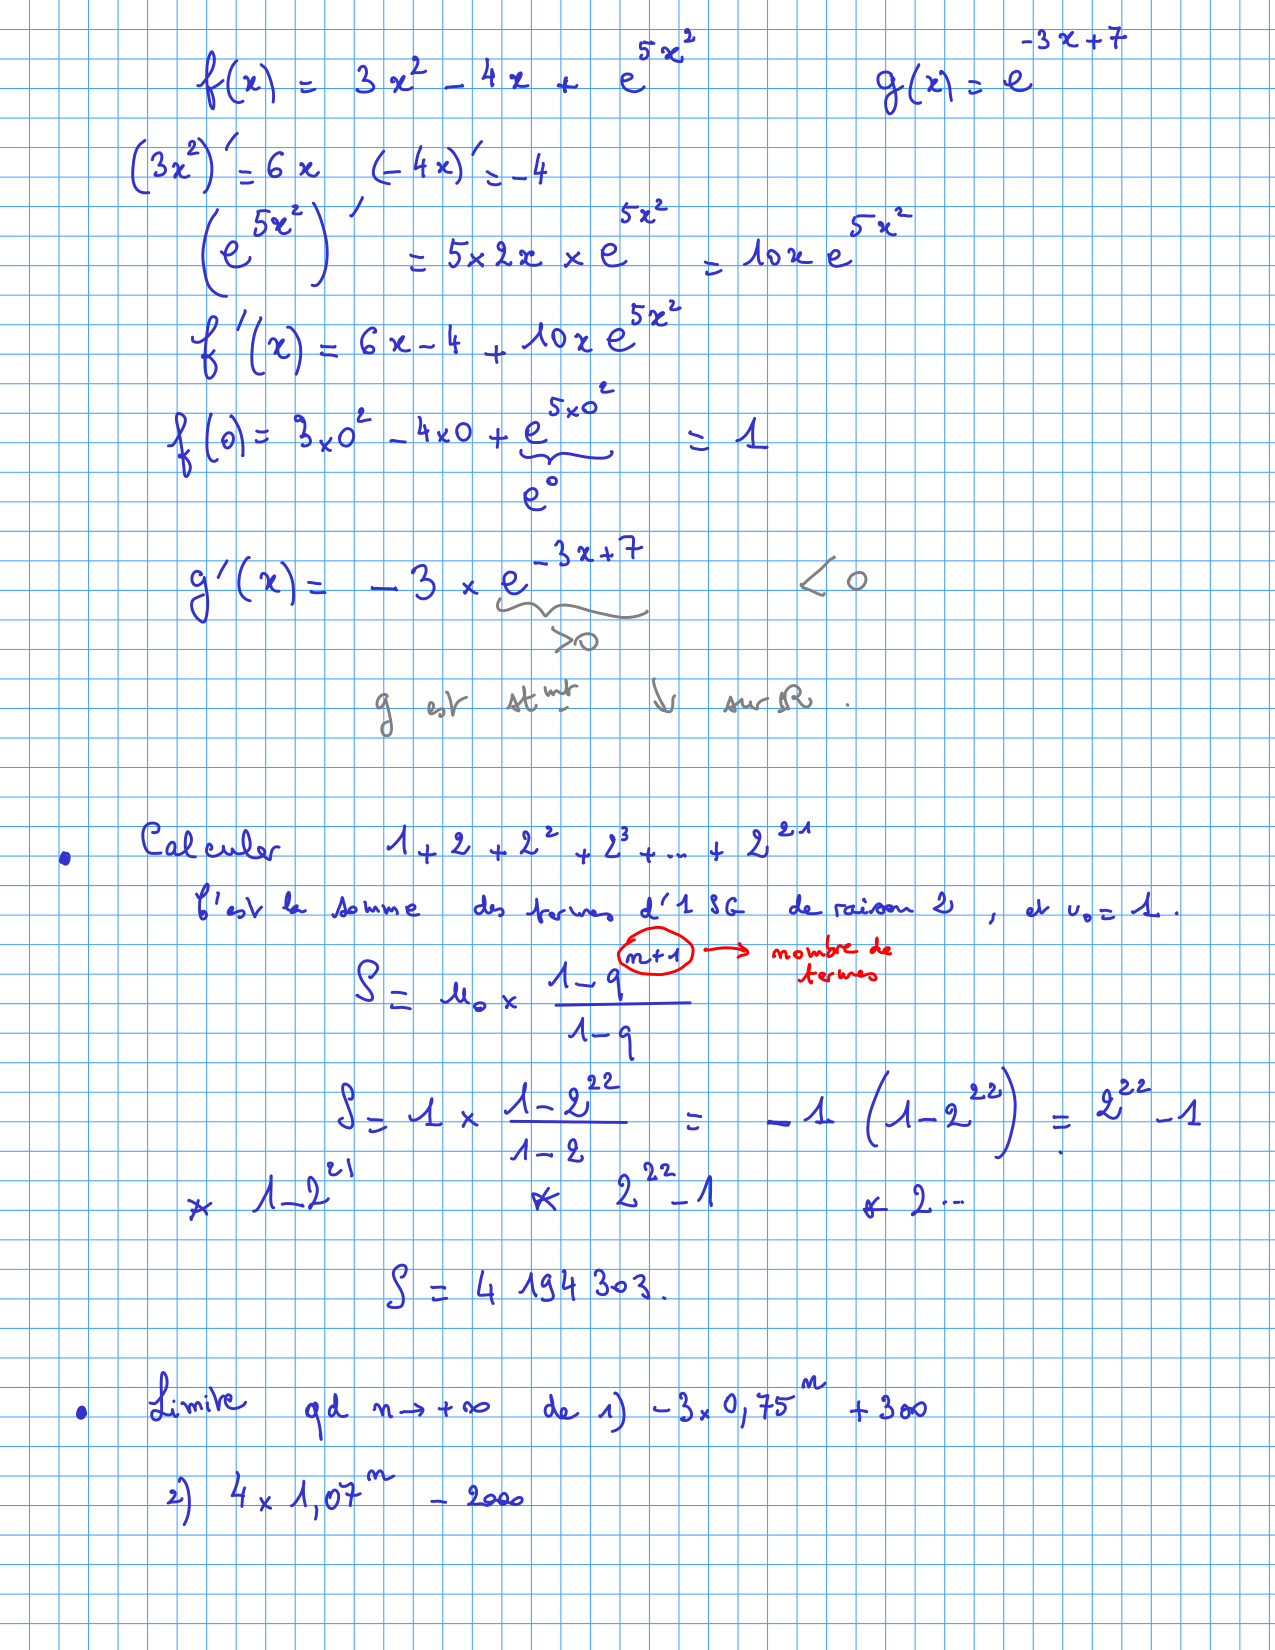 f(x) = 3x² - 4x + e^{5x²} g(x) = e^{-3x+7}
(3x²)' = 6x (-4x)' = -4
(e^{5x²})' = 5×2x × e^{5x²} = 10x e^{5x²}
f'(x) = 6x - 4 + 10x e^{5x²}
f(0) = 3×0² - 4×0 + e^{5×0²} = 1
e⁰
g'(x) = -3 × e^{-3x+7} < 0
>0
g est st^{mt} ↓ sur ℝ.
• Calculer 1 + 2 + 2² + 2³ + ... + 2²¹
C'est la somme des termes d'1 SG de raison 2, et u₀ = 1.
S = u₀ × (1-q^{n+1})/(1-q) → nombre de
termes
S = 1 × (1-2²²)/(1-2) = -1 (1-2²²) = 2²² - 1
* 1-2²¹ * 2²²-1 * 2...
S = 4 194 303.
• Limite qd n → +∞ de 1) -3×0,75ⁿ + 300
2) 4 × 1,07ⁿ - 2000